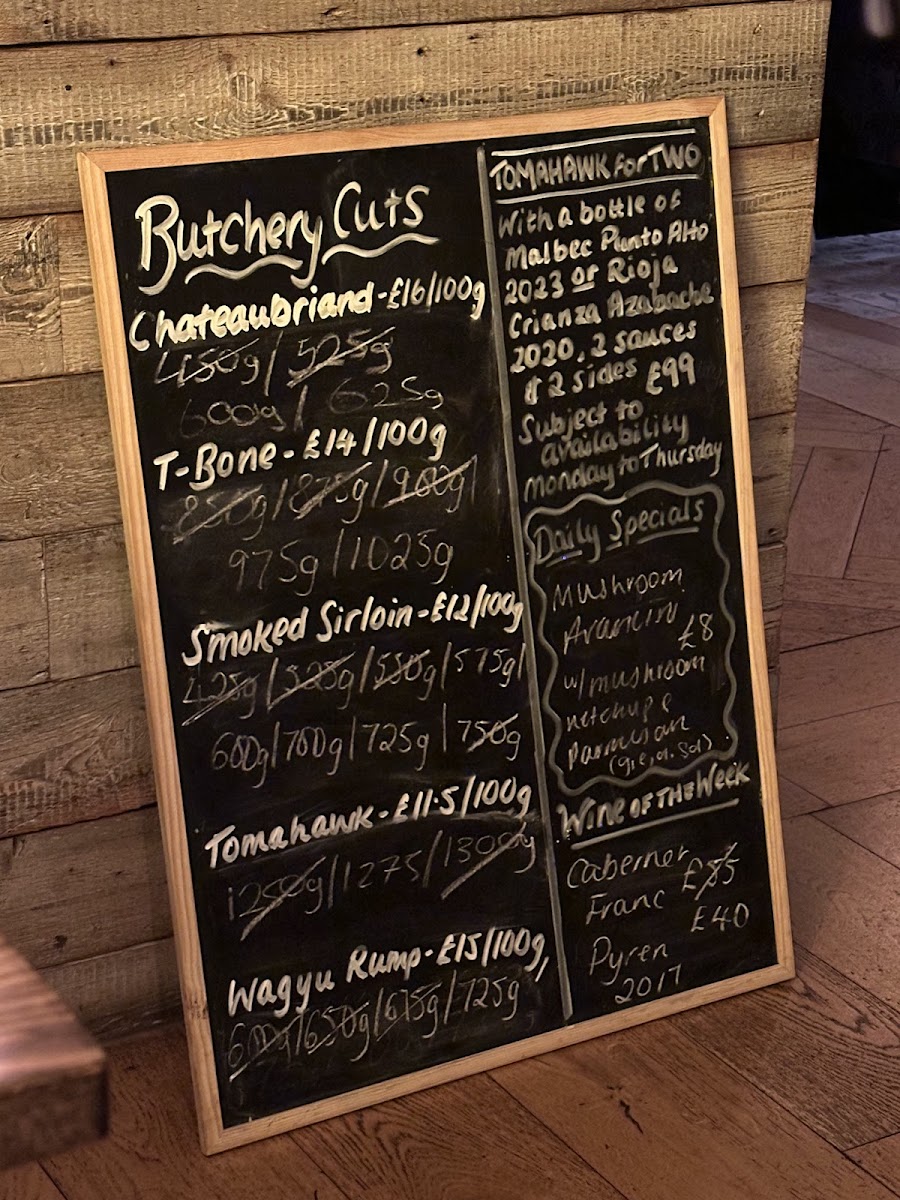 Butchery Cuts
Chateaubriand - £16/100g
450g / 525g
600g / 625g
T-Bone - £14/100g
850g / 875g / 900g /
975g / 1025g
Smoked Sirloin - £12/100g
425g / 525g / 550g / 575g /
600g / 700g / 725g / 750g
Tomahawk - £11.5/100g
1250g / 1275 / 1300g
Wagyu Rump - £15/100g,
600g / 650g / 675g / 725g
TOMAHAWK For TWO
With a bottle of
Malbec Punto Alto
2023 or Rioja
Crianza Azabache
2020, 2 sauces
& 2 sides £99
Subject to
availability
Monday to Thursday
Daily Specials
Mushroom
Arancini
£8
w/ mushroom
ketchup &
Parmesan
WINE OF THE WEEK
Cabernet
Franc £55
£40
Pyren
2017